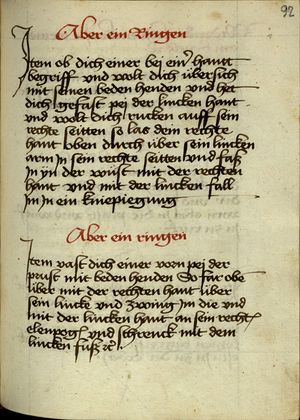 92
Aber ein Ringen
Item ob dich einer bei einer hant
begriff und wolt dich übersich
mit seinen beden henden und het
dich gefast pei der lincken hant
und wolt dich rucken auff sein
rechte seitten so las dein rechte
hant oben durch über sein lincken
arm In sein rechte seitten und faß
In yn der wüst mit der rechten
hant und mit der lincken fall
Im In ein kniepiegung
Aber ein ringen
Item vast dich einer vorn pei der
prust mit beden henden So far obe
über mit der rechten hant über
sein lincke und zwing Im die und
mit der lincken hant an sein recht
elenpog und schrenck mit dem
lincken fuß